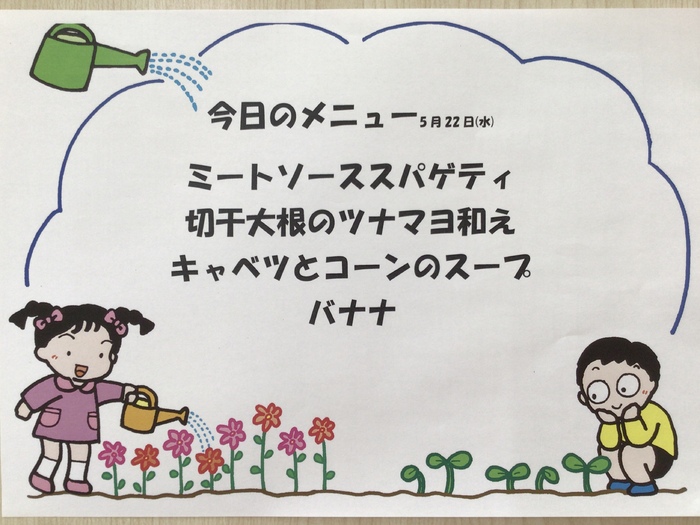 今日のメニュー 5月22日(水)
ミートソーススパゲティ
切干大根のツナマヨ和え
キャベツとコーンのスープ
バナナ